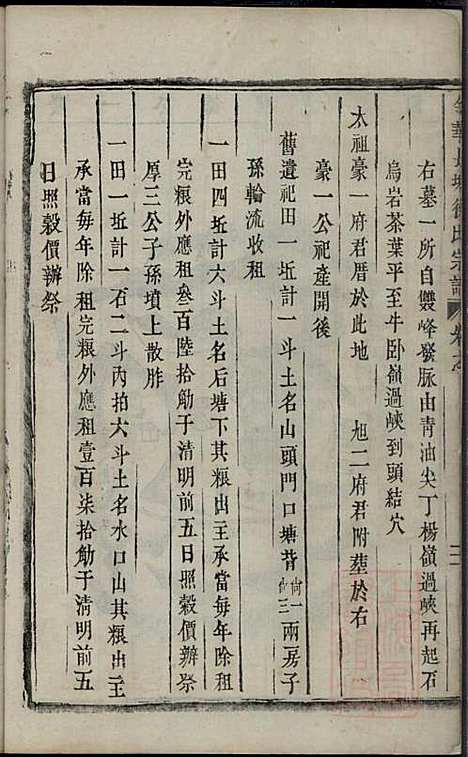 金華長塘徐氏宗譜 卷之
右墓一所自雙峰發脉由青油尖丁楊嶺過峽再起石
烏岩茶葉平至牛卧嶺過峽到頭結穴
太祖豪一府君厝於此地 旭二府君附塟於右
豪一公祀產開後
舊遺祀田一坵計一斗土名山頭門口塘背尚一尚三兩房子
孫輪流收租
一田四坵計六斗土名后塘下其粮出主承當每年除租
完粮外應租叁百陸拾觔于清明前五日照穀價辦祭
厚三公子孫墳上散胙
一田一坵計一石二斗內拍六斗土名水口山其粮出主
承當每年除租完粮外應租壹百柒拾觔于清明前五
日照穀價辦祭